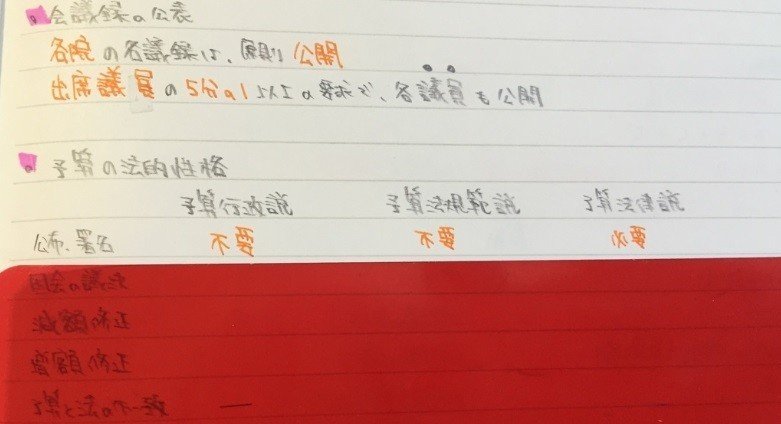 会議録の公表
各院の各議録は、原則公開
出席議員の5分の1以上の要求で、各議員も公開
予算の法的性格
予算行政説 予算法規範説 予算法律説
公布、署名 不要 不要 必要
国会の議決
減額修正
増額修正
予算と法の不一致 —